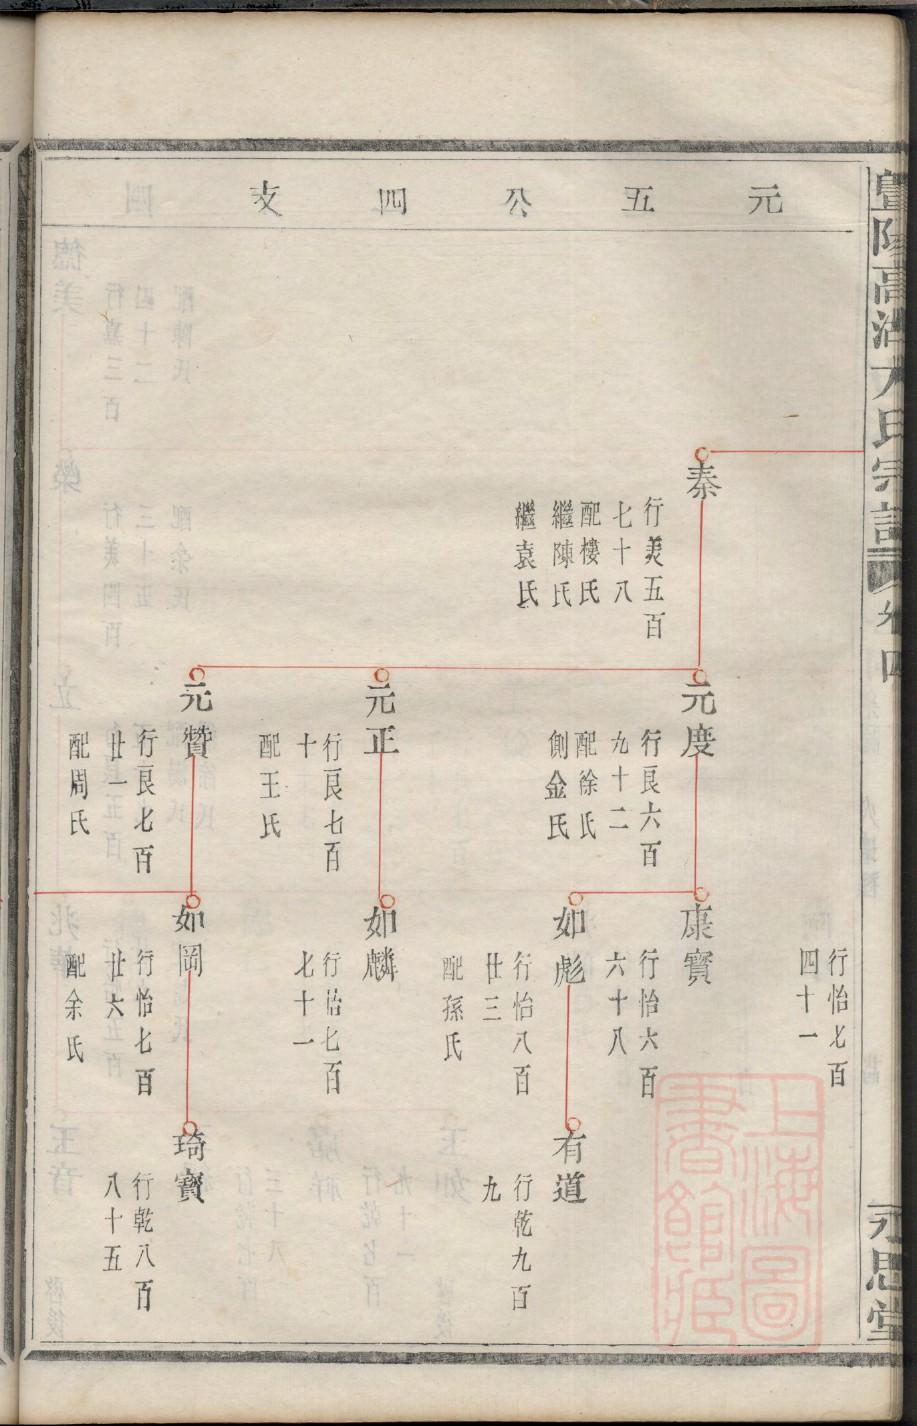 元五公四支
暨陽高湖方氏宗譜
卷四
永思堂
行怡七百
四十一
秦
行美五百
七十八
配樓氏
繼陳氏
繼袁氏
元度
行良六百
九十二
配徐氏
側金氏
元正
行良七百
十
配王氏
元贊
行良七百
廿一
配周氏
康寶
行怡六百
六十八
如彪
行怡八百
廿三
配孫氏
如麟
行怡七百
七十一
如岡
行怡七百
廿六
配余氏
有道
行乾九百
九
琦寶
行乾八百
八十五
上海圖
書館藏